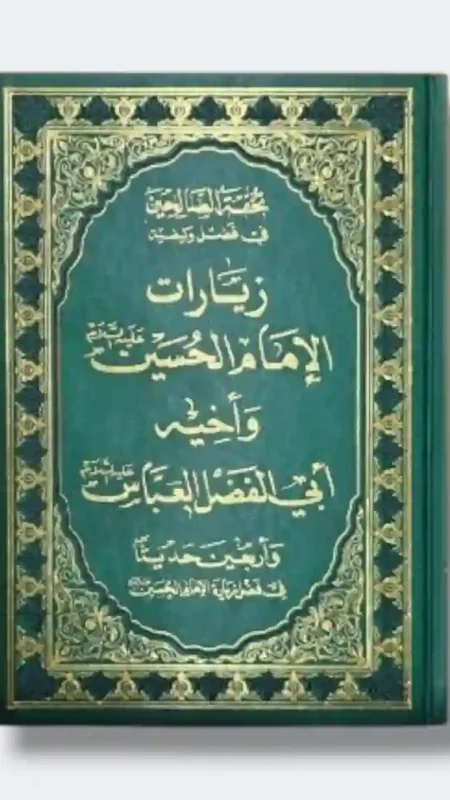 تحفة الصالحين
في فضل وكيفية
زيارات
الإمام الحسين عليه السلام
وأخيه
أبي الفضل العباس عليه السلام
وأربعين حديثا
في فضل زيارة الإمام الحسين